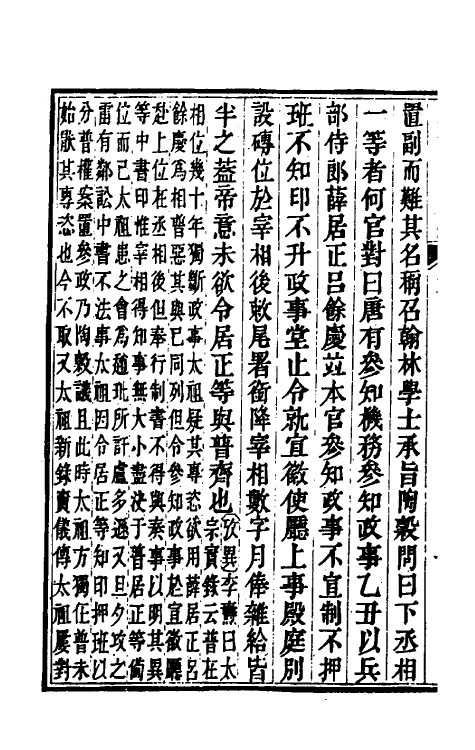 置副而難其名稱召翰林學士承旨陶穀問曰下丞相
一等者何官對曰唐有參知機務參知政事乙丑以兵
部侍郎薛居正呂餘慶竝本官參知政事不宣制不押
班不知印不升政事堂止令就宣徽使廳上事殿庭別
設磚位於宰相後敕尾署銜降宰相數字月俸雜給皆
半之蓋帝意未欲令居正等與普齊也攷異李燾曰太
宗實錄云普在
相位幾十年獨斷政事太祖疑其專恣欲用薛居正名
餘慶爲相普惡其與已同列但令參知政事於宣徽廳
赴上位在丞相後但奉行制書不得與奏事以明其異
等中書印惟宰相得知事無大小盡决于普居正等備
位而已太祖患之會爲趙玭所訐盧多遜又旦夕攻之
雷有鄰訟中書不法事太祖因令居正等知印押班以
分普權案置參政乃陶穀議且此時太祖方獨任普未
始厭其專恣也今不取又太祖新錄竇儀傳太祖屢對